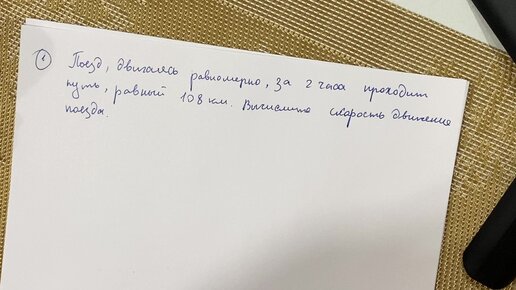 1 Поезд, двигаясь равномерно, за 2 часа проходит
путь, равный 108 км. Вычислите скорость движения
поезда.